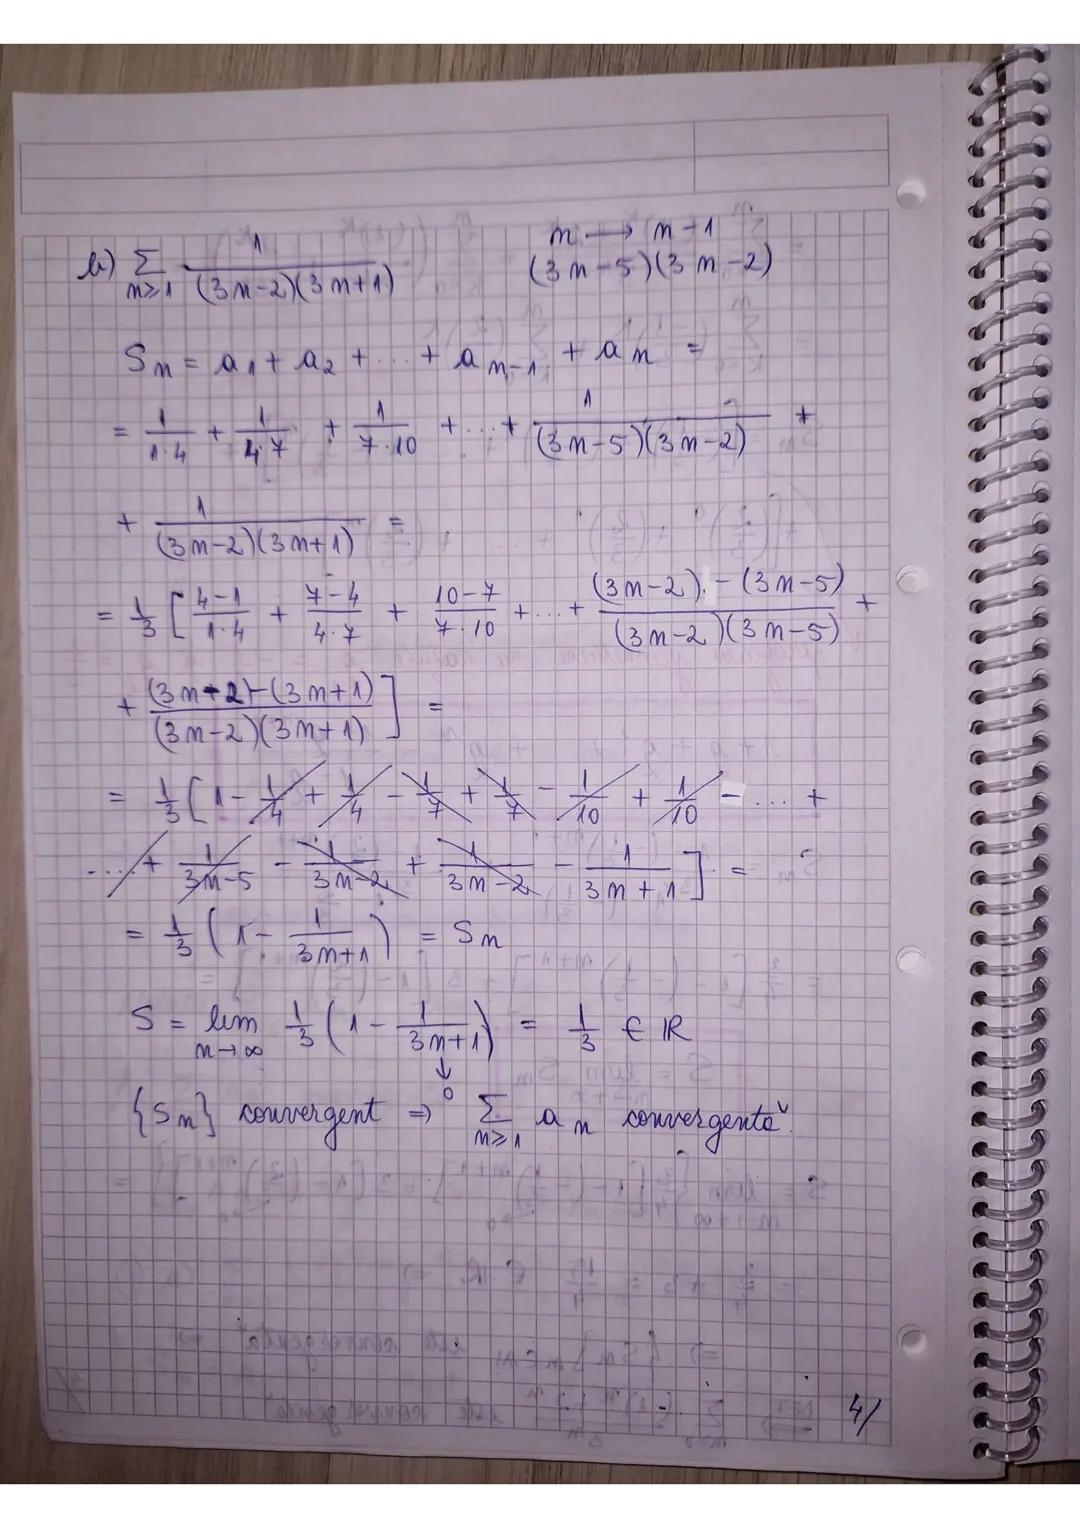 b) ∑_{n≥1} 1/((3n-2)(3n+1))    n → n-1
(3n-5)(3n-2)
S_n = a_1 + a_2 + ... + a_{n-1} + a_n =
= 1/(1·4) + 1/(4·7) + 1/(7·10) + ... + 1/((3n-5)(3n-2)) +
+ 1/((3n-2)(3n+1)) =
= 1/3 [ (4-1)/(1·4) + (7-4)/(4·7) + (10-7)/(7·10) + ... + ((3n-2) - (3n-5))/((3n-2)(3n-5)) +
+ ((3n-2)-(3n+1))/((3n-2)(3n+1)) ] =
= 1/3 [ 1 - 1/4 + 1/4 - 1/7 + 1/7 - 1/10 + 1/10 - ... +
... + 1/(3n-5) - 1/(3n-2) + 1/(3n-2) - 1/(3n+1) ] =
= 1/3 ( 1 - 1/(3n+1) ) = S_n
S = lim_{n→∞} 1/3 ( 1 - 1/(3n+1) ) = 1/3 ∈ ℝ
↓
0
{S_n} convergent ⇒ ∑_{n≥1} a_n convergentă.
4/